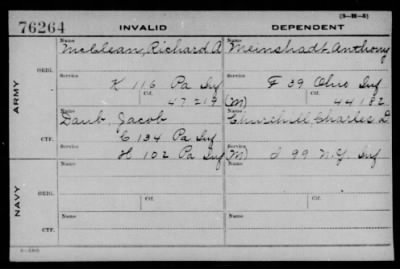 (3-111-2)
76264 INVALID DEPENDENT
Name Name
McClean, Richard A Meinshadt Anthony
ARMY
ORIG.
Service Service
K 116 Pa Inf F 39 Ohio Inf
Ctf. Ctf.
47 219 (M) 44 182
Name Name
Daub, Jacob Churchill Charles D
CTF.
Service Service
C 134 Pa Inf
H 102 Pa Inf (M) I 99 N.Y. Inf
NAVY
ORIG.
Name Name
Service Service
Ctf. Ctf.
CTF.
Name Name
Service Service